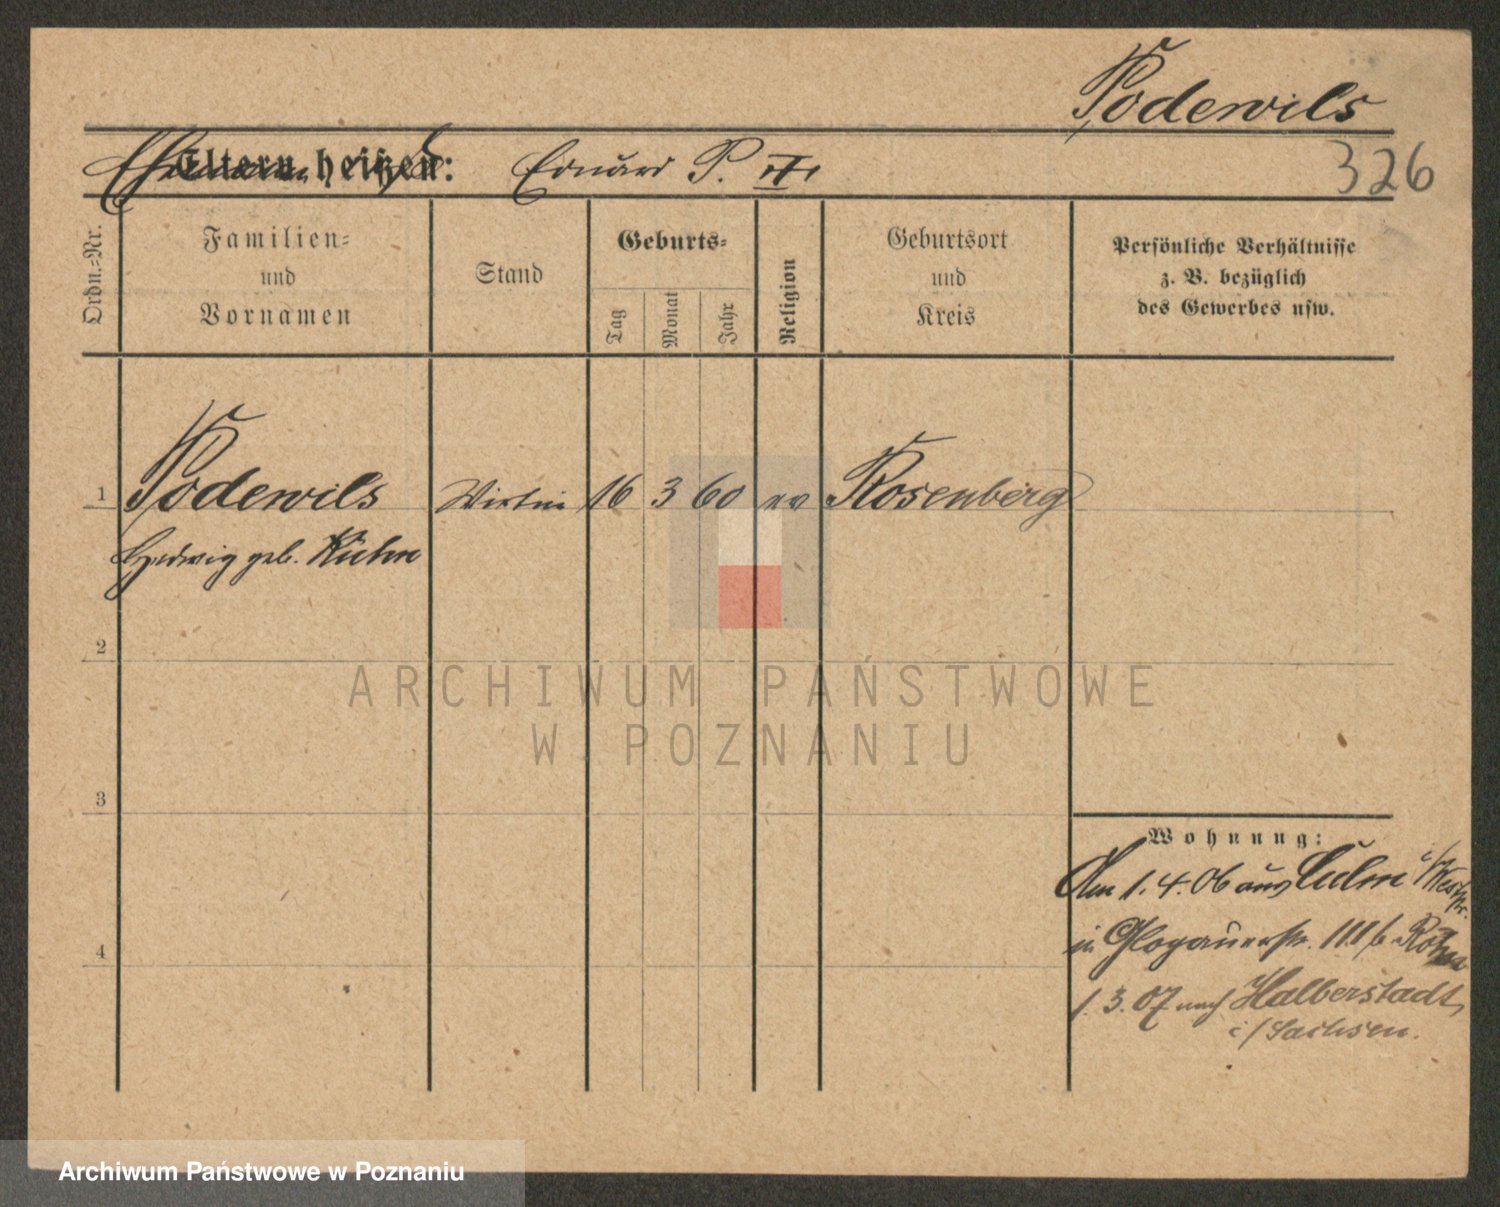 Podewils
326
Eltern heißen: Eduard P. III
Ordn.-Nr.
Familien-
und
Vornamen
Stand
Geburts-
Tag
Monat
Jahr
Religion
Geburtsort
und
Kreis
Persönliche Verhältnisse
z. B. bezüglich
des Gewerbes usw.
1 Podewils Wirtin 16 3 60 ev Rosenberg
Hedwig geb. Kühn
2
3
4
Wohnung:
Am 1.4.06 aus Culm i/Westpr.
in Glogauerstr. 111 b.
1.3.07 nach Halberstadt,
i/Sachsen.
ARCHIWUM PAŃSTWOWE
W POZNANIU
Archiwum Państwowe w Poznaniu